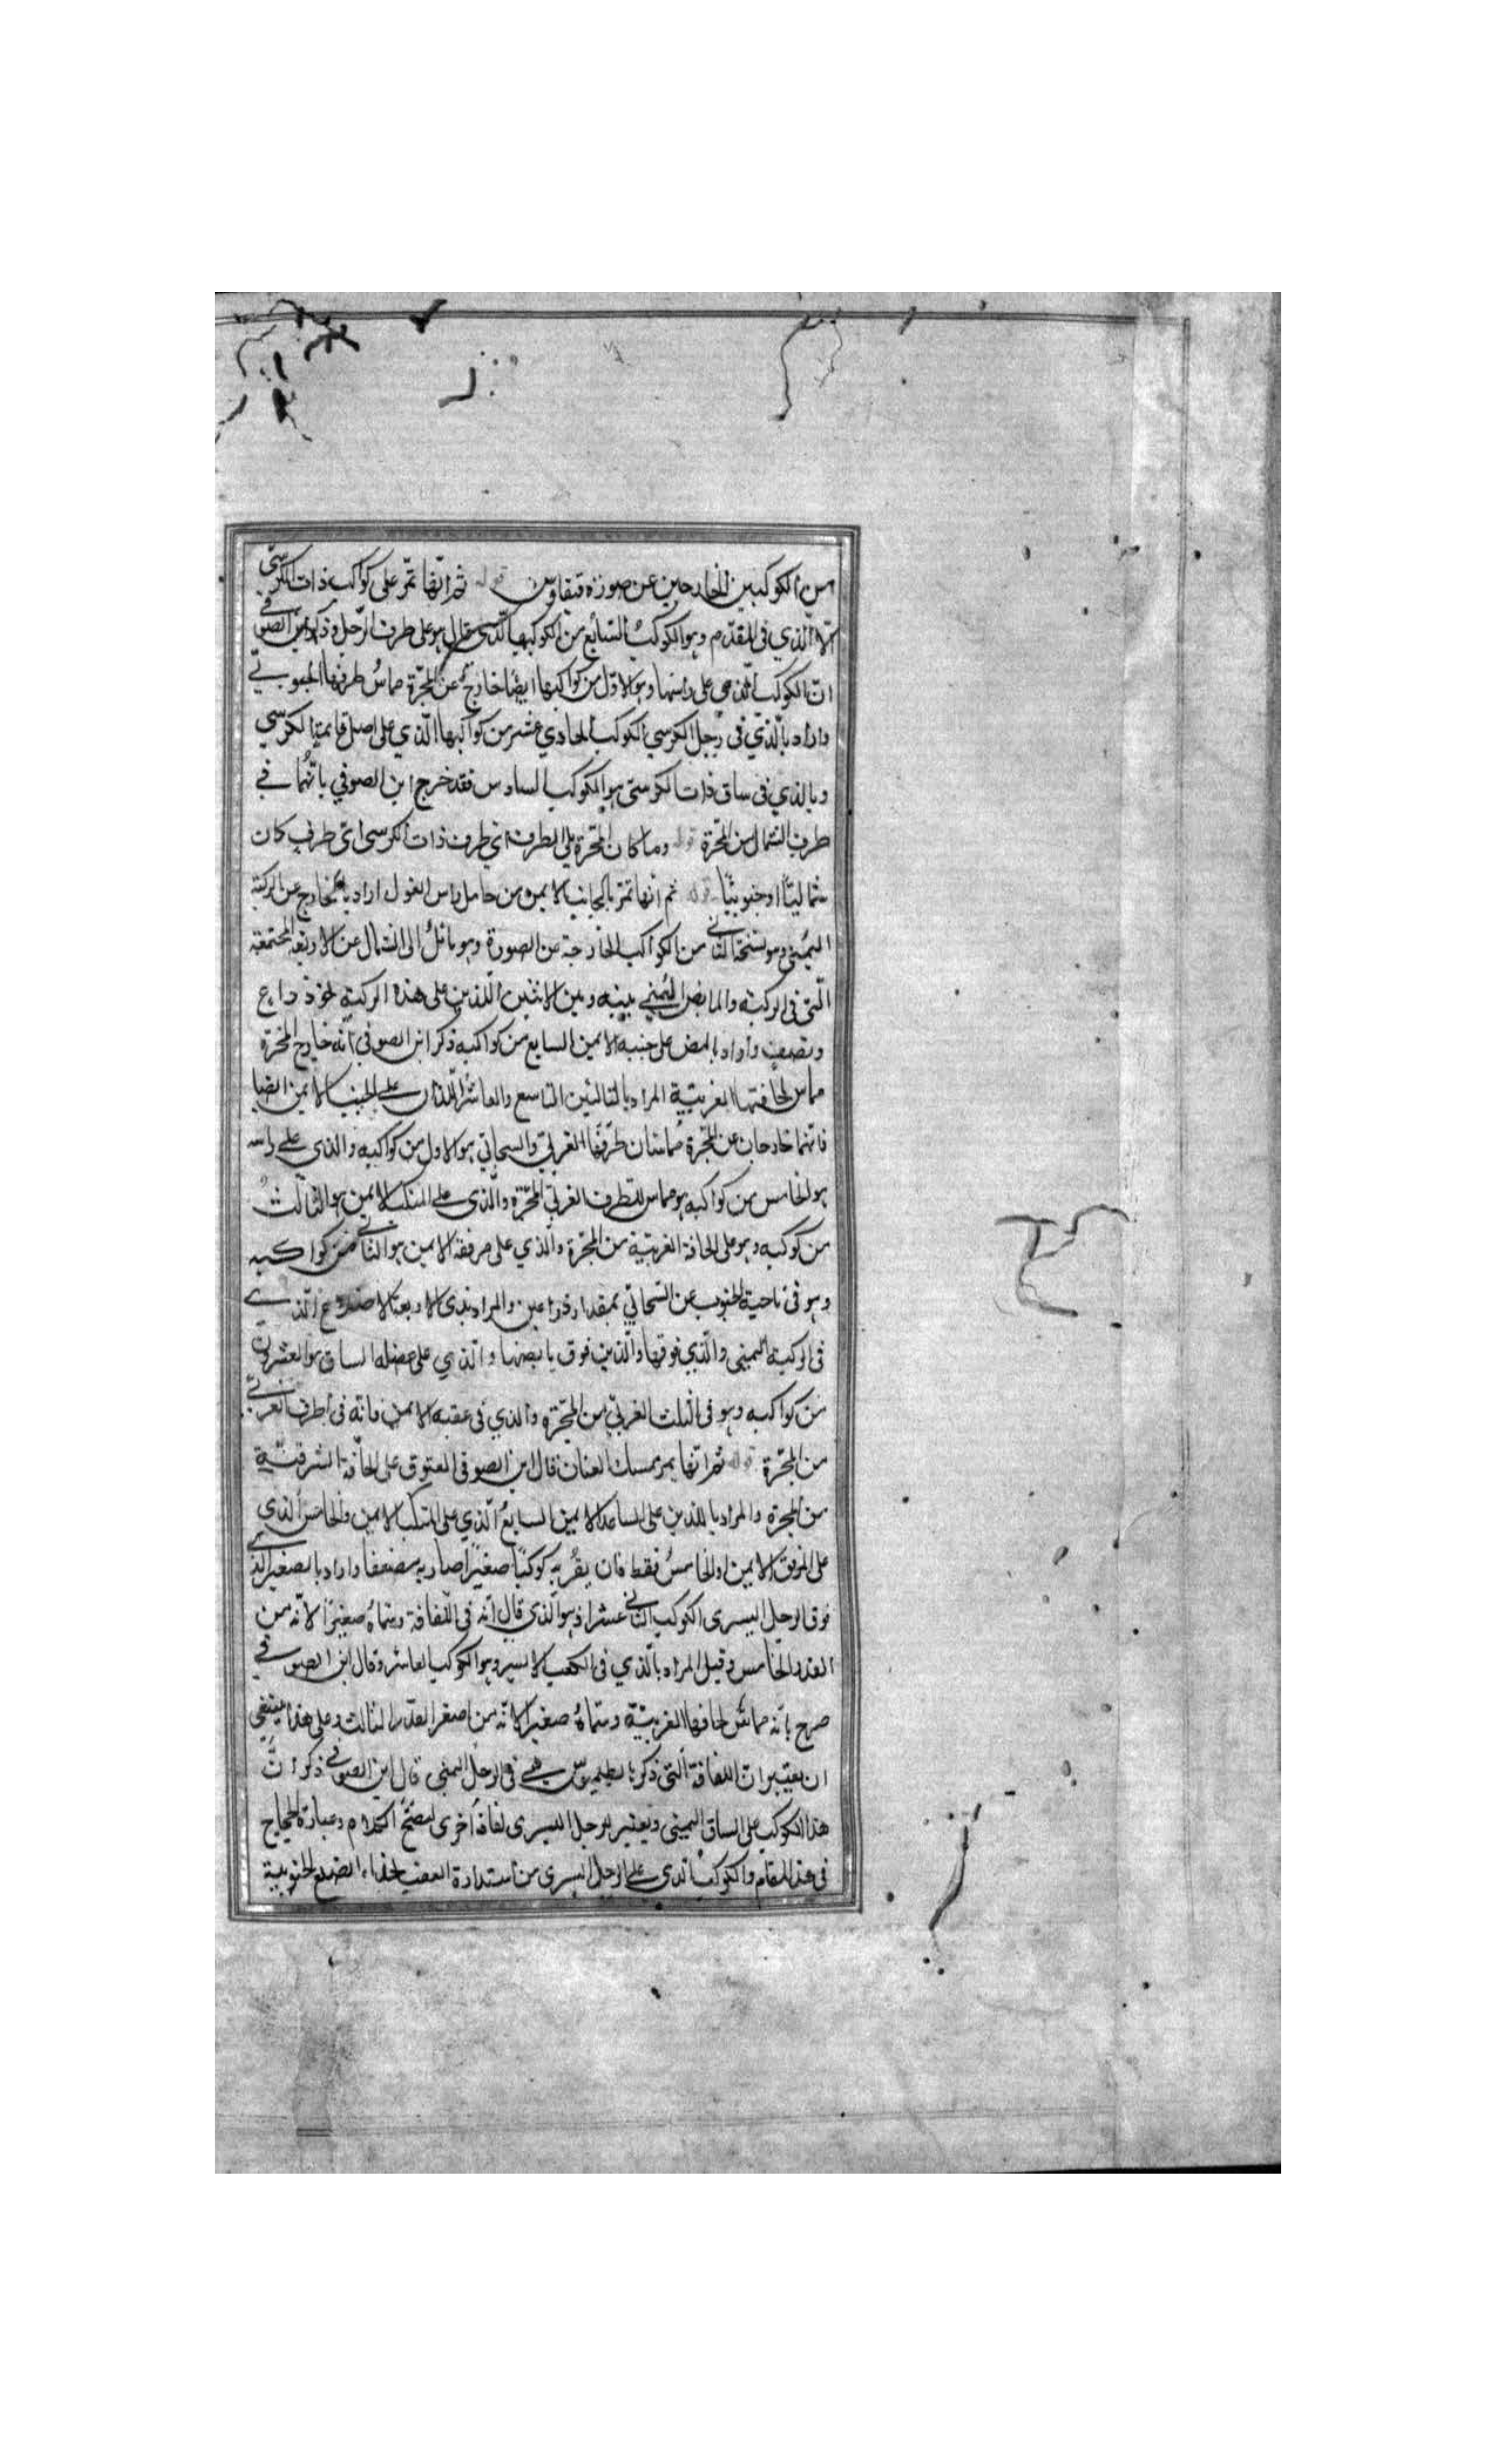 من الكوكبين الخارجين عن صورة قيفاوس قوله ثم انها تمر على كواكب ذات الكرسي
الا الذي في المقدم وهو الكوكب السابع من الكوكبها الذي قال هو على طرف الرجل وذكر ابن الصوفي
ان الكوكب الذي على راسها وهو الاول من كواكبها ايضا خارج عن المجرة مماس طرفها الجنوبي
واراد بالذي في رجل الكرسي الكوكب الحادي عشر من كواكبها الذي على اصل قائمة الكرسي
وبالذي في ساق ذات الكرسي هو الكوكب السادس فقد خرج ابن الصوفي بانهما في
طرف الشمال من المجرة قوله وما كان المجرة يلي الطرف اي طرف ذات الكرسي اي طرف كان
شماليا او جنوبيا قوله ثم انها تمر بالجانب الايمن من حامل راس الغول اراد بالخارج عن الركبة
اليمنى وهو الثاني من الكواكب الخارجة عن الصورة وهو مائل الى الشمال عن الاربعة المجتمعة
التي في الركبة والمابض اليمنى بينه وبين الاثنين اللذين على هذه الركبة نحو ذراع
ونصف واراد على جنبه الايمن السابع من كواكبه ذكر ابن الصوفي انه خارج المجرة
مماس لحافتها الغربية المراد بالتاليين التاسع والعاشر اللذان على الجنب الايمن ايضا
فانهما خارجان عن المجرة مماسان طرفها الغربي والسحابي هو الاول من كواكبه والذي على راسه
هو الخامس من كواكبه هو مماس للطرف الغربي المجرة والذي على المنكب الايمن هو الثالث
من كوكبه وهو على الحافة الغربية من المجرة والذي على مرفقه الايمن هو الثاني من كواكبه
وهو في ناحية الجنوب عن السحابي بمقدار ذراعين والمراد بذي الاربعة الاضلاع الذي
في الركبة اليمنى والذي فوقها والذين فوق مابضها والذي على عضلة الساق هو العشرون
من كواكبه وهو في الثلث الغربي من المجرة والذي في عقبه الايمن فانه في الطرف الغربي
من المجرة قوله ثم انها يمر بممسك العنان قال ابن الصوفي العيوق على الحافة الشرقية
من المجرة والمراد باللذين على الساعد الايمن السابع الذي على المنكب الايمن والخامس الذي
على المرفق الايمن او الخامس فقط فان بقربه كوكبا صغيرا صار به مضعفا واراد بالصغير الذي
فوق الرجل اليسرى الكوكب الثاني عشر اذ هو الذي قال انه في اللفافة وسماه صغيرا لانه من
القدر الخامس وقيل المراد بالذي في الكعب الايسر وهو الكوكب العاشر وقال ابن الصوفي
صرح بانه مماس لحافها الغربية وسماه صغيرا لانه من اصغر القدر الثالث وعلى هذا ينبغي
ان يعتبر ان اللفافة التي ذكر بطليموس هي في الرجل اليمنى قال ابن الصوفي ذكر ان
هذا الكوكب على الساق اليمنى ويعتبر للرجل اليسرى لفافة اخرى ليصح الكلام وعبارة الحجاج
في هذا المقام والكوكب الذي على الرجل اليسرى من استدارة العقب بحذاء الضلع الجنوبية